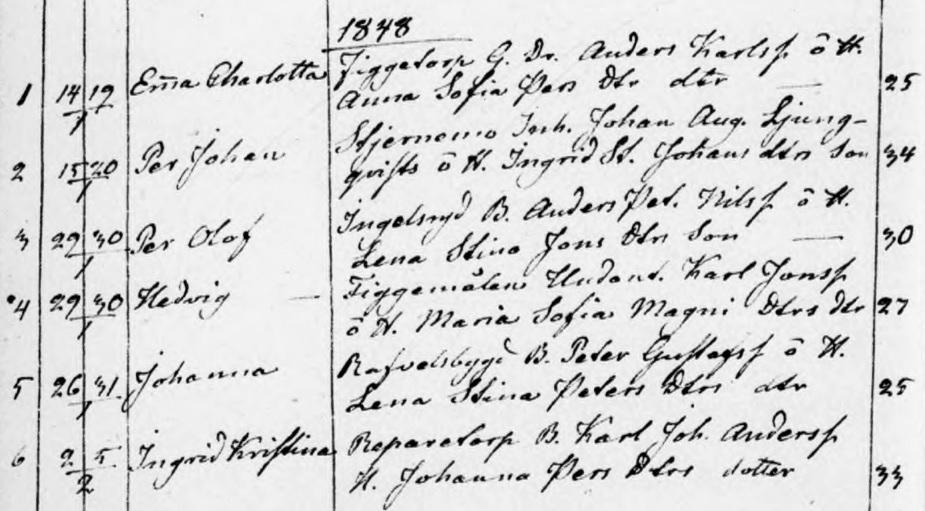 1848
1 14 19 Em̃a Charlotta Tiggetorp G. Dr. Anders Karlss. ō H.
1 Anna Sofia Pers Dtr dtr — 25
2 15 20 Per Johan Stjernemo Inh. Johan Aug. Ljung-
1 qvists ō H. Ingrid St. Johans dtrs Son 34
3 29 30 Per Olof Ingelsryd B. Anders Pet. Nilss. ō H.
1 Lena Stina Jons Dtrs Son — 30
4 29 30 Hedvig — Tiggemålen Undant. Karl Jonss.
1 ō H. Maria Sofia Magni Dtrs dtr 27
5 26 31 Johanna B. Peter Gustafss. ō H.
1 Lena Stina Peters Dtrs dtr 25
6 2 5 Ingrid Kristina Reparetorp B. Karl Joh. Anderss.
2 H. Johanna Pers Dtrs dotter 33